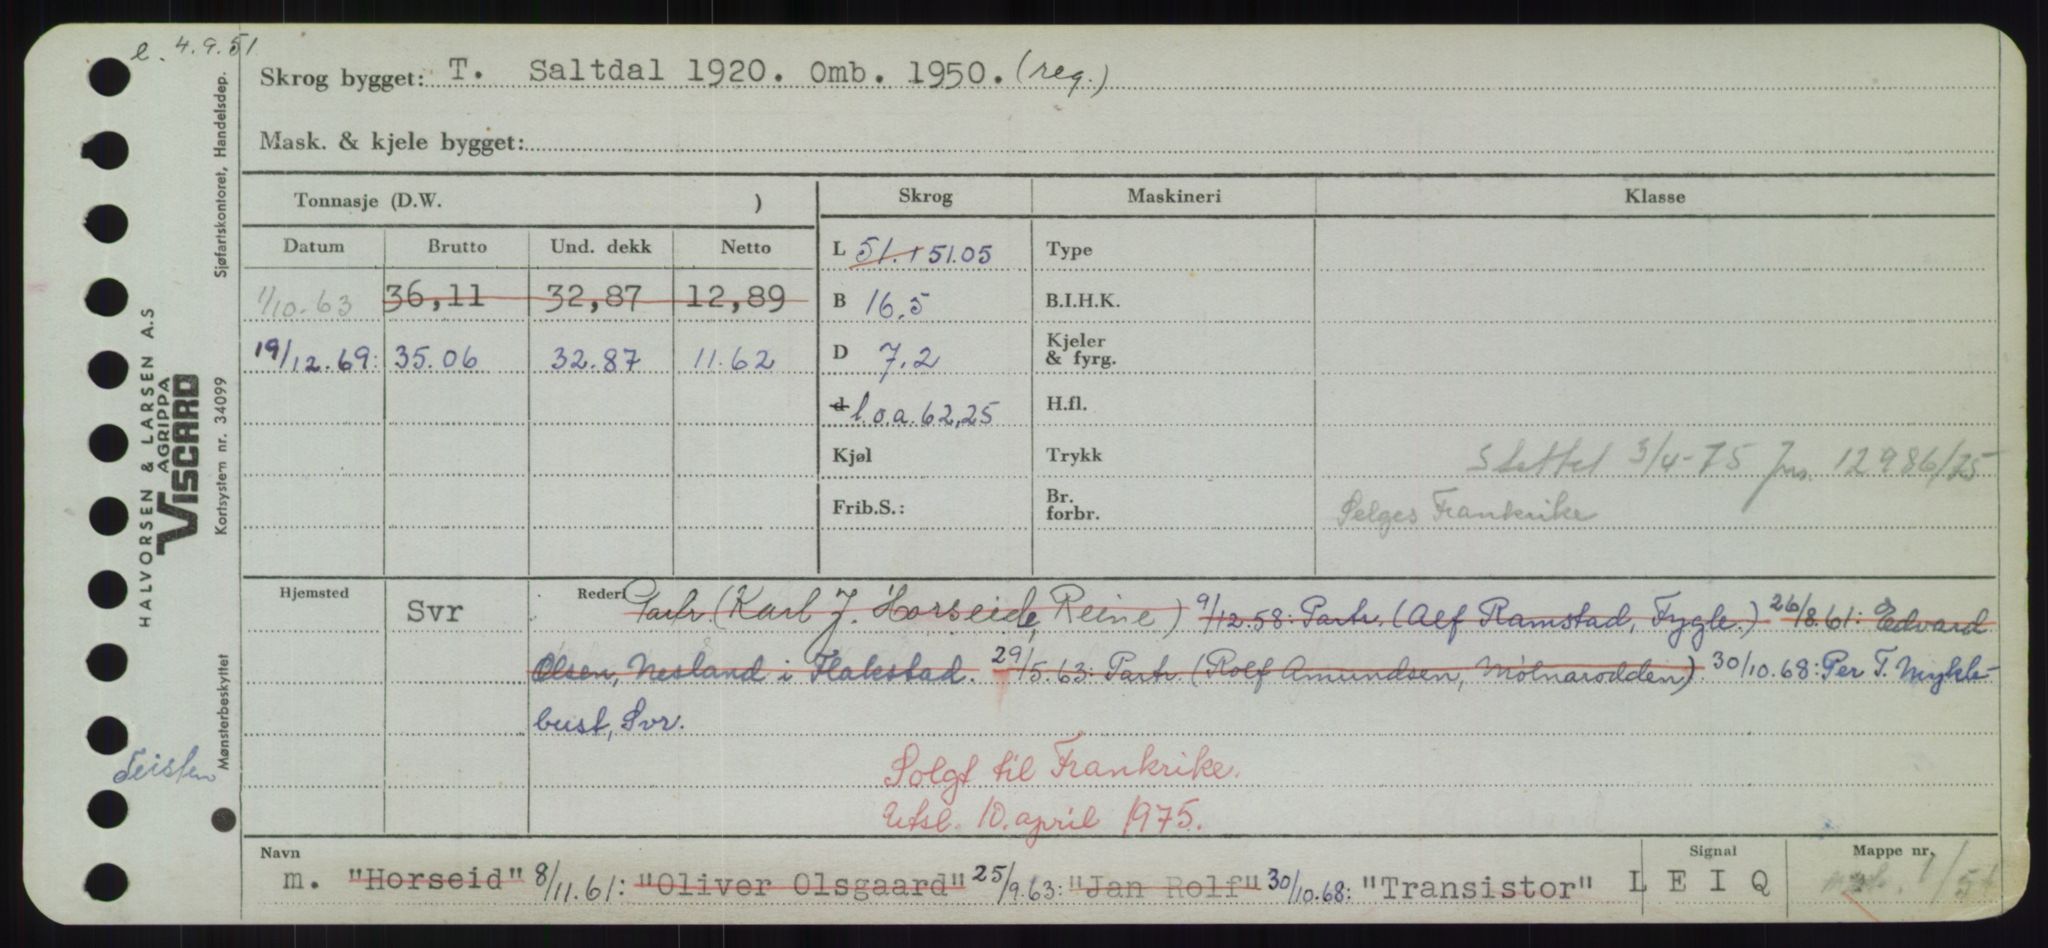 e. 4.9.51
Skrog bygget: T. Saltdal 1920. Omb. 1950. (reg.)
Mask. & kjele bygget:
Tonnasje (D.W. )
Skrog
Maskineri
Klasse
Datum Brutto Und. dekk Netto
L 51.1 51.05
Type
1/10.63 36,11 32,87 12,89
B 16.5
B.I.H.K.
19/12.69: 35.06 32.87 11.62
D 7.2
Kjeler
& fyrg.
d l.o.a. 62,25
H.fl.
Kjøl
Trykk
Slettet 3/4-75 Jnr. 12986/75
Frib.S.:
Br.
forbr.
Selges Frankrike
Hjemsted Svr
Rederi Partr. (Karl J. Horseide, Reine) 9/12.58: Partr. (Alf Ramstad, Fygle.) 26/8.61: Edvard
Olsen, Nesland i Flakstad. 29/5.63: Partr. (Rolf Amundsen, Mølnarodden) 30/10.68: Per T. Mykle-
bust, Svr.
Solgt til Frankrike.
Utsl. 10. april 1975.
Navn
Signal
Mappe nr.
m. "Horseid" 8/11.61: "Oliver Olsgaard" 25/9.63: "Jan Rolf" 30/10.68: "Transistor" L E I Q
Sjøfartskontoret, Handelsdep.
HALVORSEN & LARSEN A.S
AGRIPPA
VISCARD
Kortsystem nr. 34099
Mønsterbeskyttet
Teisten